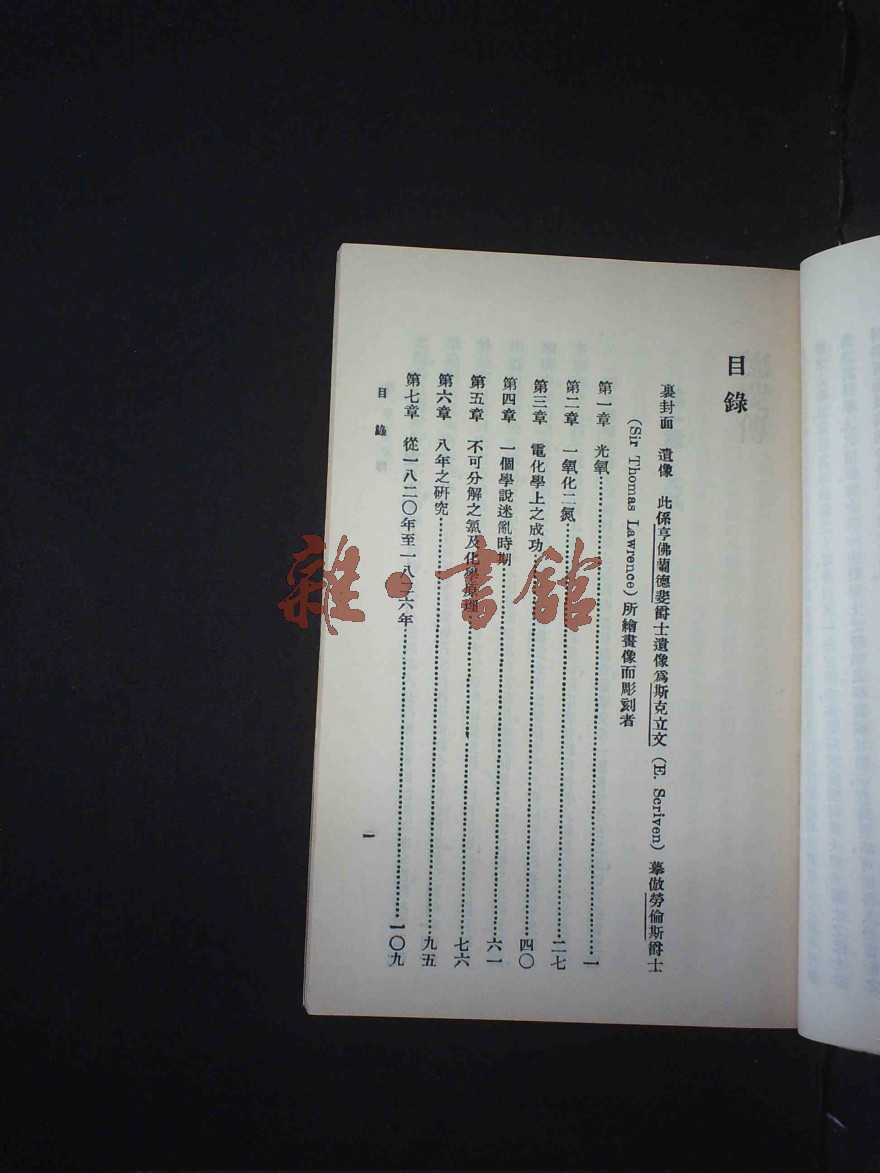 目錄
裏封面 遺像 此係亨佛蘭德斐爵士遺像爲斯克立文 (E. Scriven) 摹倣勞倫斯爵士
(Sir Thomas Lawrence) 所繪畫像而彫刻者
第一章 光氧……一
第二章 一氧化二氮……二七
第三章 電化學上之成功……四〇
第四章 一個學說迷亂時期……六一
第五章 不可分解之氯及化學原理……七六
第六章 八年之研究……九五
第七章 從一八二〇年至一八二六年……一〇九
目錄
一
雜·書館